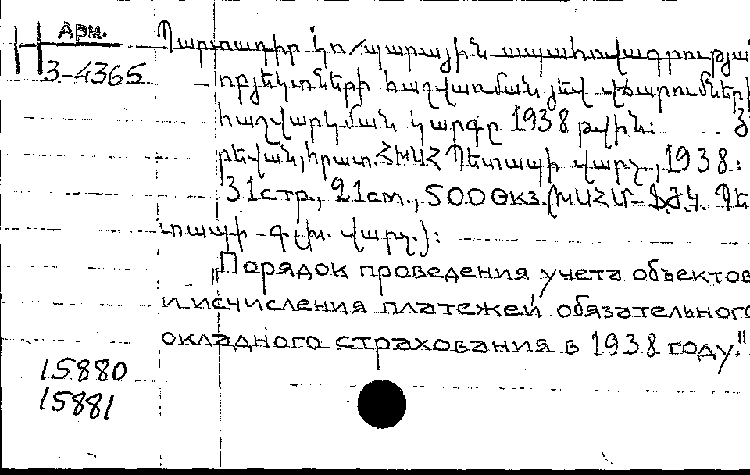 Арм.
З-4365
Պարտադիր կո/պարային ապահովագրության
որյեկտների հաշվառման յեվ վճարումների
հաշվարկման կարգը 1938 թվին: Յե
րեվան, հրատ. ՀԽՍՀ Պետապի վարչ., 1938:
31 стр., 21 см., 500 экз. (ԽՍՀՄ ՖԺԿ. Պե
տապի գլխ. վարչ.):
„Порядок проведения учета объектов
и исчисления платежей обязательного
окладного страхования в 1938 году."
15880
15881